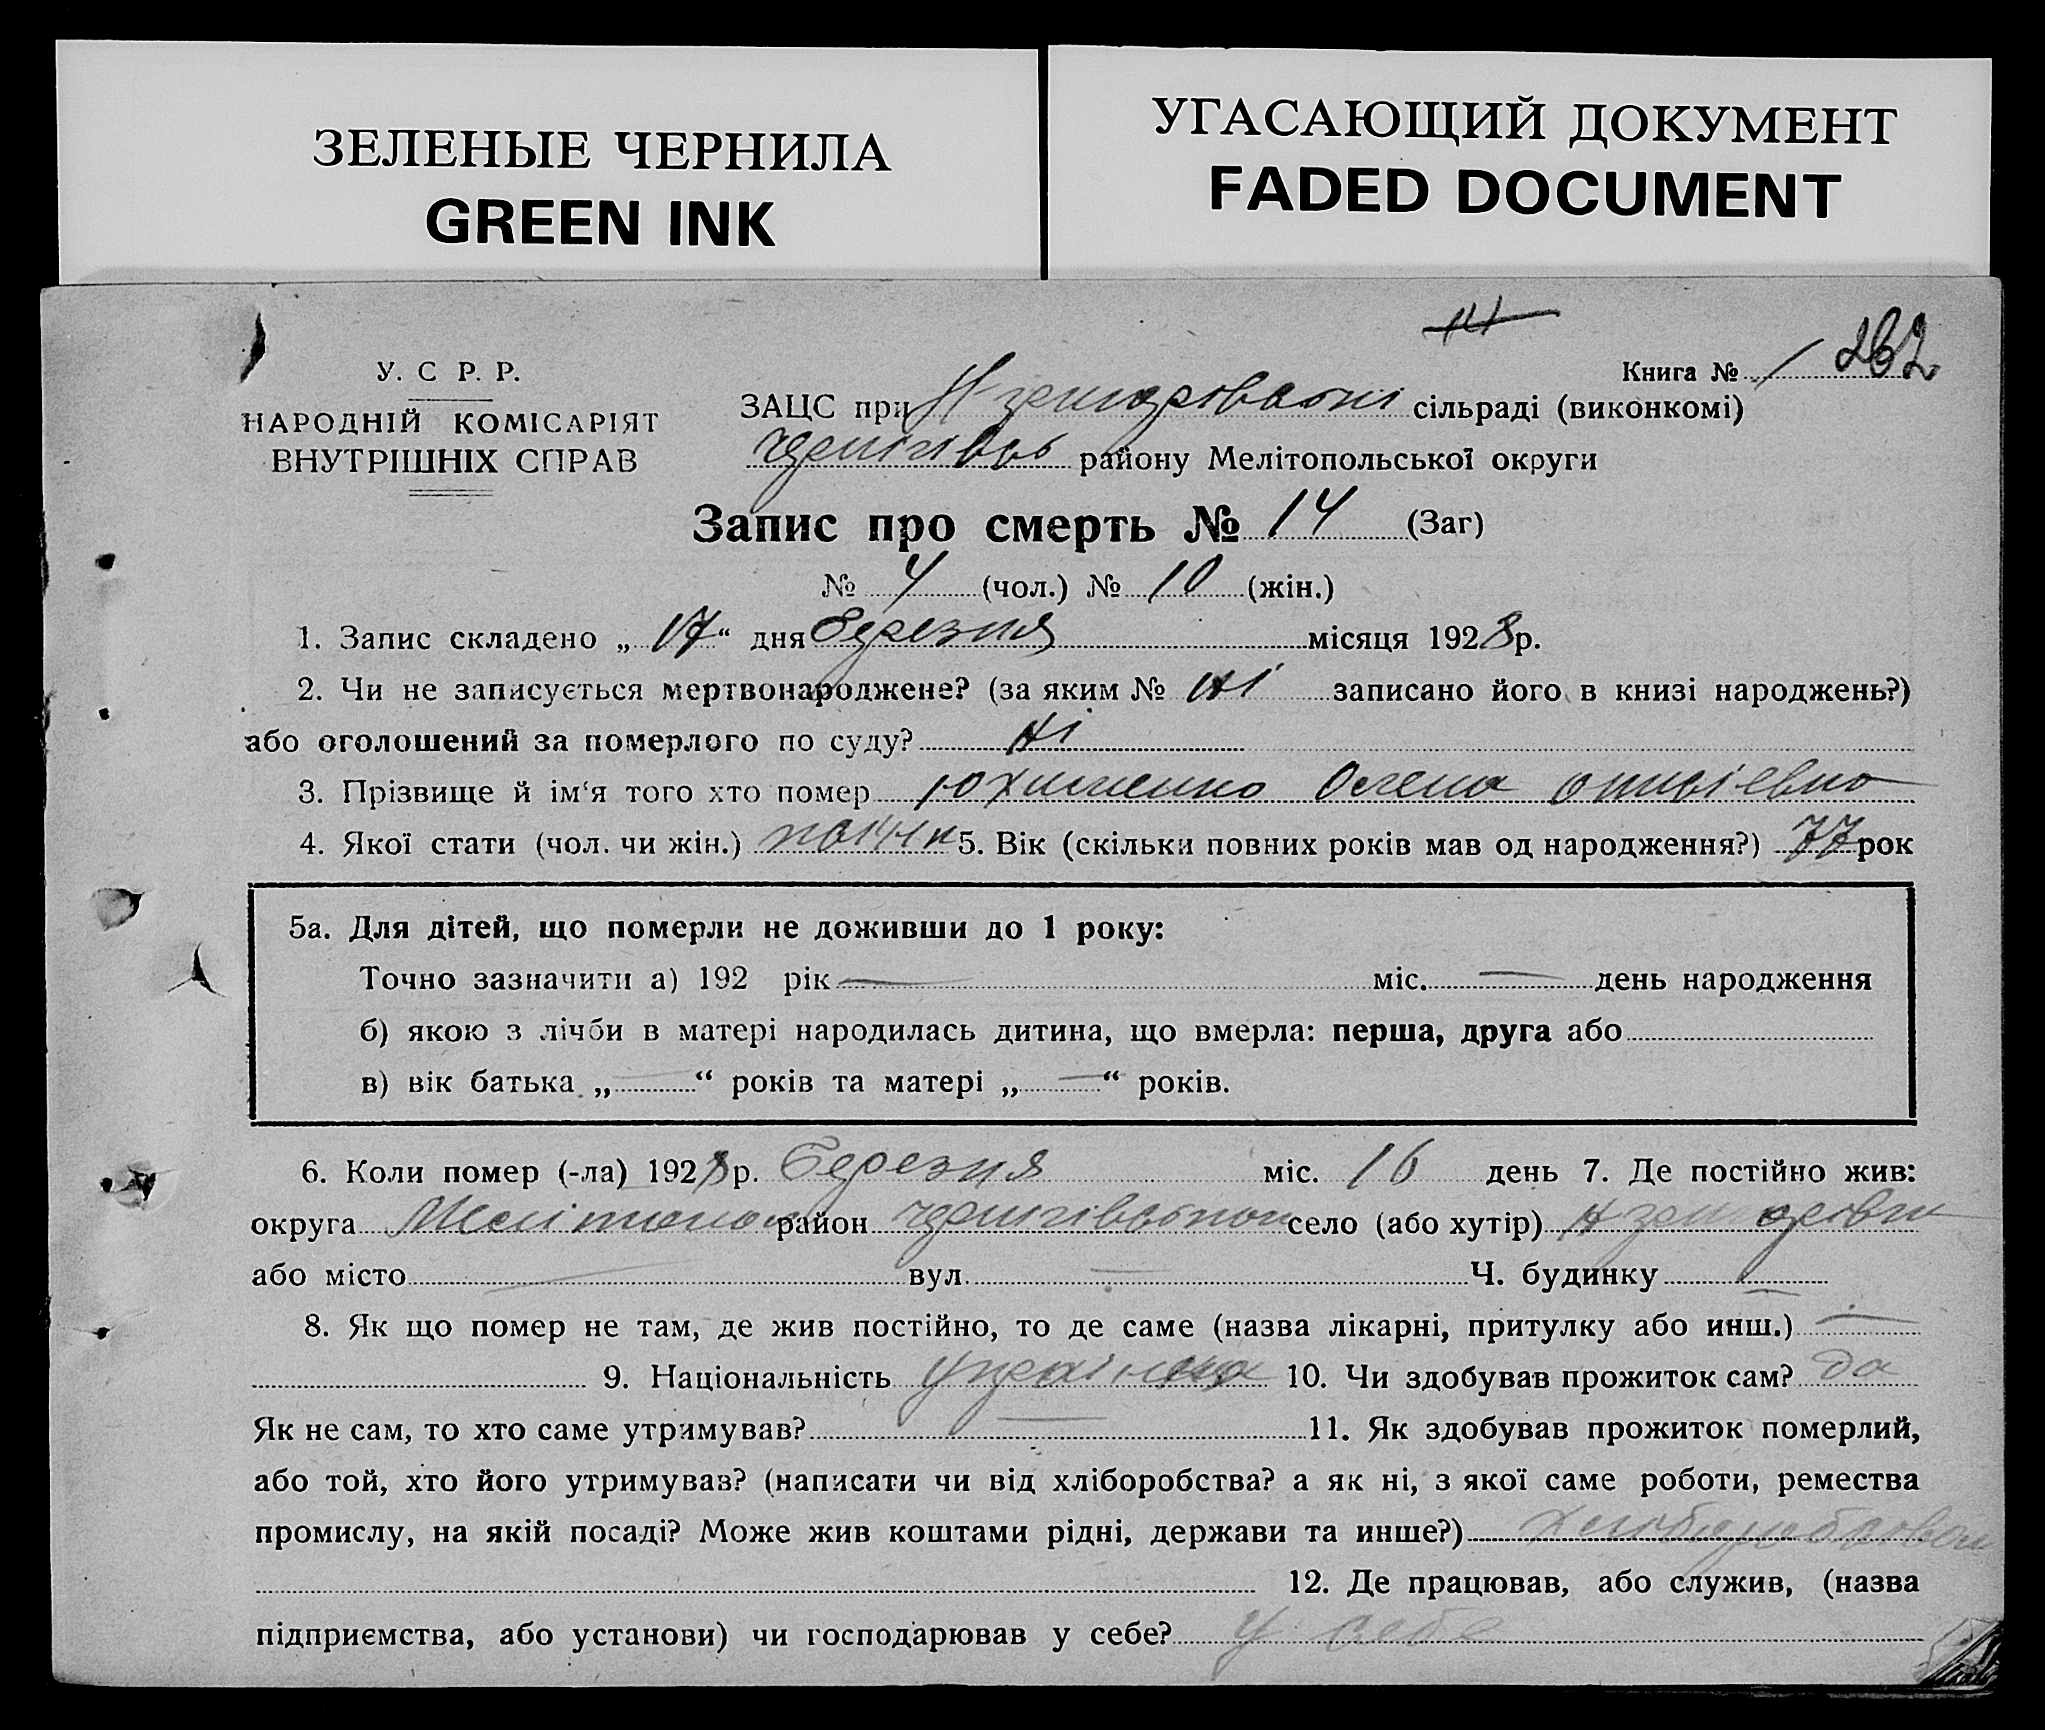 ЗЕЛЕНЫЕ ЧЕРНИЛА
GREEN INK
УГАСАЮЩИЙ ДОКУМЕНТ
FADED DOCUMENT
У. С Р. Р.
НАРОДНІЙ КОМІСАРІЯТ
ВНУТРІШНІХ СПРАВ
Книга № 1 262
ЗАЦС при сільраді (виконкомі)
району Мелітопольської округи
Запис про смерть № 14 (Заг)
№ 4 (чол.) № 10 (жін.)
1. Запис складено „ 17 “ дня березня місяця 1928 р.
2. Чи не записується мертвонароджене? (за яким № ні записано його в книзі народжень?)
або оголошений за померлого по суду? ні
3. Прізвище й ім‘я того хто помер Юхименко Олена
4. Якої стати (чол. чи жін.) 5. Вік (скільки повних років мав од народження?) 77 рок
5а. Для дітей, що померли не доживши до 1 року:
Точно зазначити а) 192 рік — міс. — день народження
б) якою з лічби в матері народилась дитина, що вмерла: перша, друга або
в) вік батька „ — “ років та матері „ — “ років.
6. Коли помер (-ла) 1928 р. березня міс. 16 день 7. Де постійно жив:
округа Мелітопол район село (або хутір)
або місто — вул. — Ч. будинку —
8. Як що помер не там, де жив постійно, то де саме (назва лікарні, притулку або инш.) —
9. Національність українка 10. Чи здобував прожиток сам? да
Як не сам, то хто саме утримував? — 11. Як здобував прожиток померлий,
або той, хто його утримував? (написати чи від хліборобства? а як ні, з якої саме роботи, ремества
промислу, на якій посаді? Може жив коштами рідні, держави та инше?)
12. Де працював, або служив, (назва
підприємства, або установи) чи господарював у себе? у себе